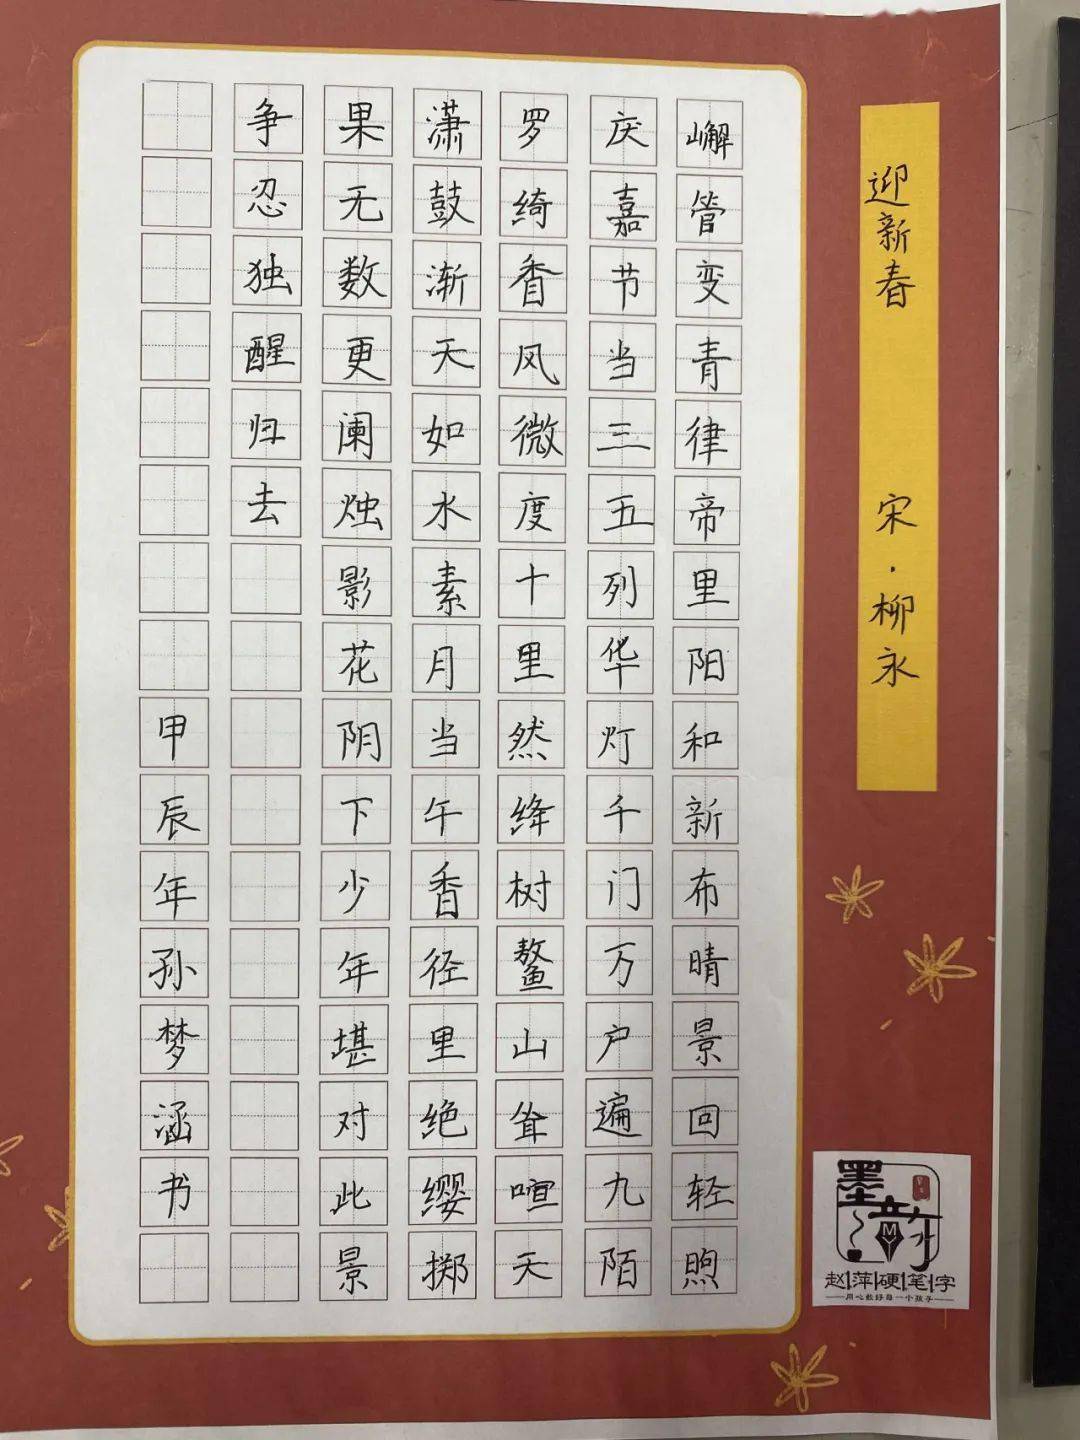 迎新春 宋·柳永
嶰管变青律帝里阳和新布晴景回轻煦
庆嘉节当三五列华灯千门万户遍九陌
罗绮香风微度十里然绛树鳌山耸喧天
潇鼓渐天如水素月当午香径里绝缨掷
果无数更阑烛影花阴下少年堪对此景
争忍独醒归去
甲辰年孙梦涵书
墨韵
MY
赵萍硬笔字
用心教好每一个孩子